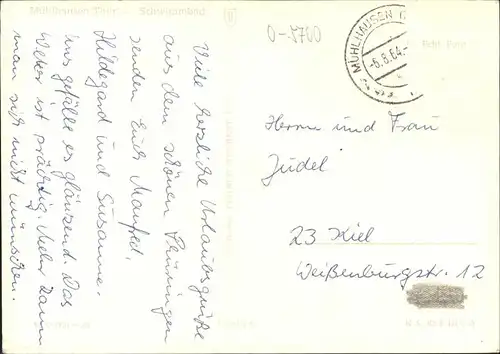 Mühlhausen Thür. Schwimmbad
0-5700
MÜHLHAUSEN
-6.8.64
Echt Foto
Viele herzliche Urlaubsgrüße
aus dem schönen Thüringen
senden Euch Manfred,
Hildegard und Susanne.
Uns gefällt es glänzend. Das
Wetter ist prächtig. Mehr kann
man sich nicht wünschen.
Herrn und Frau
Judel
23 Kiel
Weißenburgstr. 12